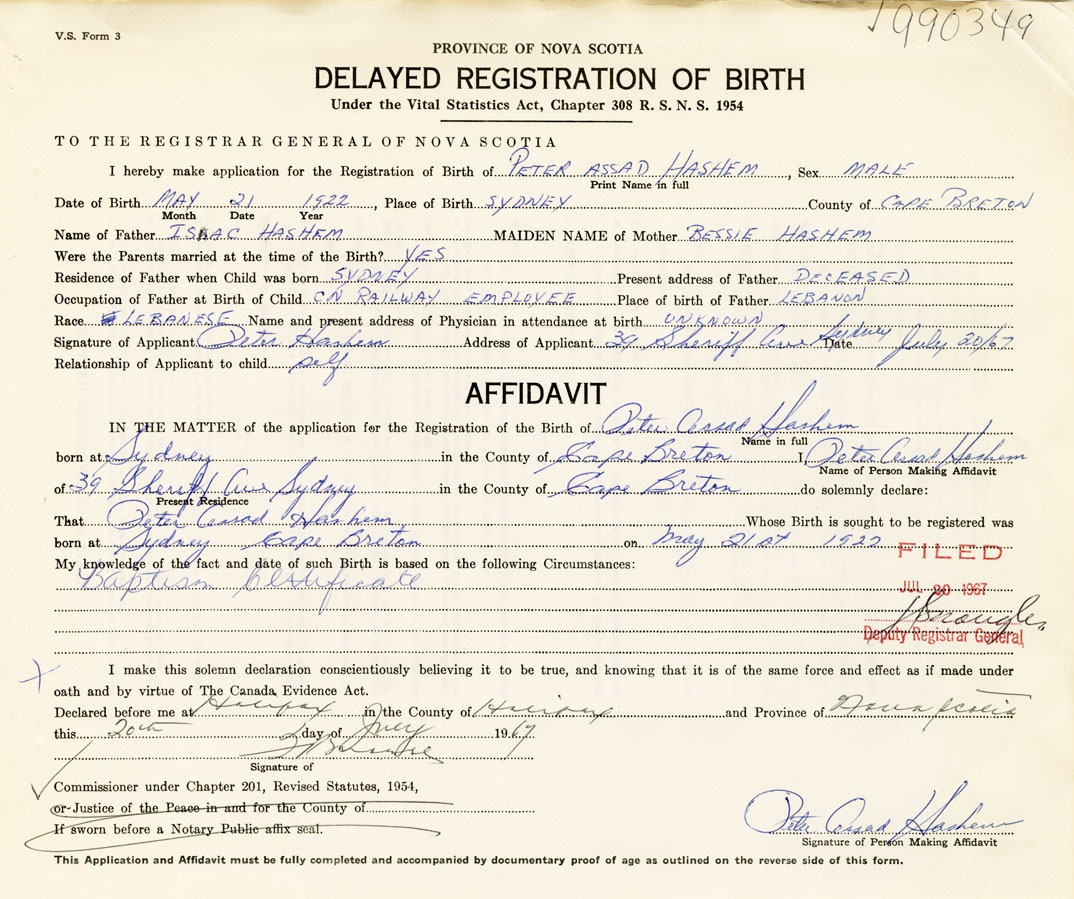 990349
V.S. Form 3
PROVINCE OF NOVA SCOTIA
DELAYED REGISTRATION OF BIRTH
Under the Vital Statistics Act, Chapter 308 R. S. N. S. 1954
TO THE REGISTRAR GENERAL OF NOVA SCOTIA
I hereby make application for the Registration of Birth of PETER ASSAD HASHEM, Sex MALE
Print Name in full
Date of Birth MAY 21 1922, Place of Birth SYDNEY County of CAPE BRETON
Month Date Year
Name of Father ISAAC HASHEM MAIDEN NAME of Mother BESSIE HASHEM
Were the Parents married at the time of the Birth? YES
Residence of Father when Child was born SYDNEY Present address of Father DECEASED
Occupation of Father at Birth of Child CN RAILWAY EMPLOYEE Place of birth of Father LEBANON
Race LEBANESE Name and present address of Physician in attendance at birth UNKNOWN
Signature of Applicant Peter Hashem Address of Applicant 39 Sheriff Ave Sydney Date July 20/67
Relationship of Applicant to child self
AFFIDAVIT
IN THE MATTER of the application for the Registration of the Birth of Peter Assad Hashem
Name in full
born at Sydney in the County of Cape Breton I, Peter Assad Hashem
Name of Person Making Affidavit
of 39 Sheriff Ave Sydney in the County of Cape Breton do solemnly declare:
Present Residence
That Peter Assad Hashem Whose Birth is sought to be registered was
born at Sydney Cape Breton on May 21st 1922
FILED
My knowledge of the fact and date of such Birth is based on the following Circumstances:
Baptism Certificate
JUL 20 1967
Deputy Registrar General
I make this solemn declaration conscientiously believing it to be true, and knowing that it is of the same force and effect as if made under
oath and by virtue of The Canada Evidence Act.
Declared before me at Halifax in the County of Halifax and Province of Nova Scotia
this 20th day of July 1967
Signature of
Commissioner under Chapter 201, Revised Statutes, 1954,
or Justice of the Peace in and for the County of
If sworn before a Notary Public affix seal.
Peter Assad Hashem
Signature of Person Making Affidavit
This Application and Affidavit must be fully completed and accompanied by documentary proof of age as outlined on the reverse side of this form.